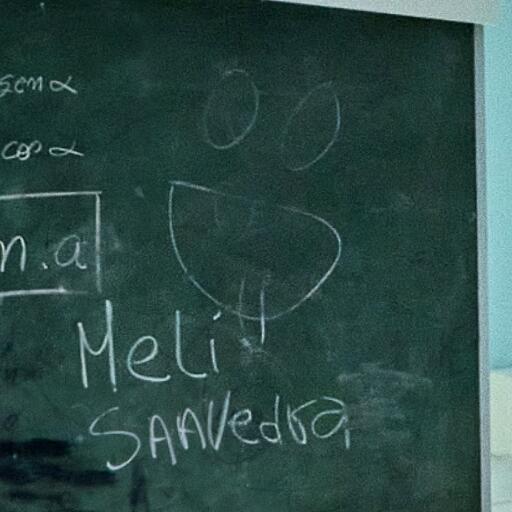 sen α
cos α
m.a
Meli
SAAVedra